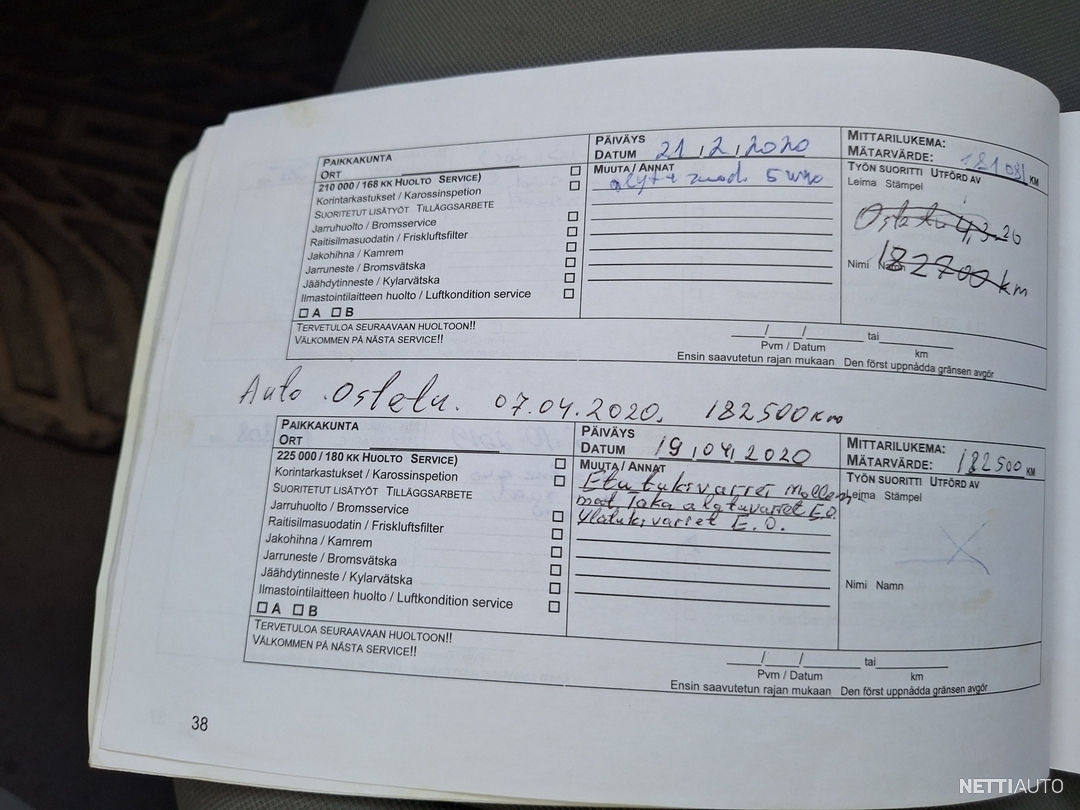 PAIKKAKUNTA
ORT
PÄIVÄYS
DATUM 21,2,2020
MITTARILUKEMA:
MÄTARVÄRDE: 181081 KM
210 000 / 168 KK HUOLTO SERVICE)
Korintarkastukset / Karossinspetion
SUORITETUT LISÄTYÖT TILLÄGGSARBETE
Jarruhuolto / Bromsservice
Raitisilmasuodatin / Friskluftsfilter
Jakohihna / Kamrem
Jarruneste / Bromsvätska
Jäähdytinneste / Kylarvätska
Ilmastointilaitteen huolto / Luftkondition service
A B
MUUTA / ANNAT
öljyt + suod. 5w40
TYÖN SUORITTI UTFÖRD AV
Leima Stämpel
Ostettu 4,3-20
Nimi Namn
182700 km
TERVETULOA SEURAAVAAN HUOLTOON!!
VÄLKOMMEN PÅ NÄSTA SERVICE!!
/ / tai
Pvm / Datum km
Ensin saavutetun rajan mukaan Den först uppnådda gränsen avgör
Auto Ostettu. 07.04.2020. 182500km
PAIKKAKUNTA
ORT
PÄIVÄYS
DATUM 19,04,2020
MITTARILUKEMA:
MÄTARVÄRDE: 182500 KM
225 000 / 180 KK HUOLTO SERVICE)
Korintarkastukset / Karossinspetion
SUORITETUT LISÄTYÖT TILLÄGGSARBETE
Jarruhuolto / Bromsservice
Raitisilmasuodatin / Friskluftsfilter
Jakohihna / Kamrem
Jarruneste / Bromsvätska
Jäähdytinneste / Kylarvätska
Ilmastointilaitteen huolto / Luftkondition service
A B
MUUTA / ANNAT
Etu tukivarret Mollem
mat, Taka alatuvarret E.O.
Ylätukivarret E.O.
TYÖN SUORITTI UTFÖRD AV
Leima Stämpel
Nimi Namn
TERVETULOA SEURAAVAAN HUOLTOON!!
VÄLKOMMEN PÅ NÄSTA SERVICE!!
/ / tai
Pvm / Datum km
Ensin saavutetun rajan mukaan Den först uppnådda gränsen avgör
38
NETTIAUTO